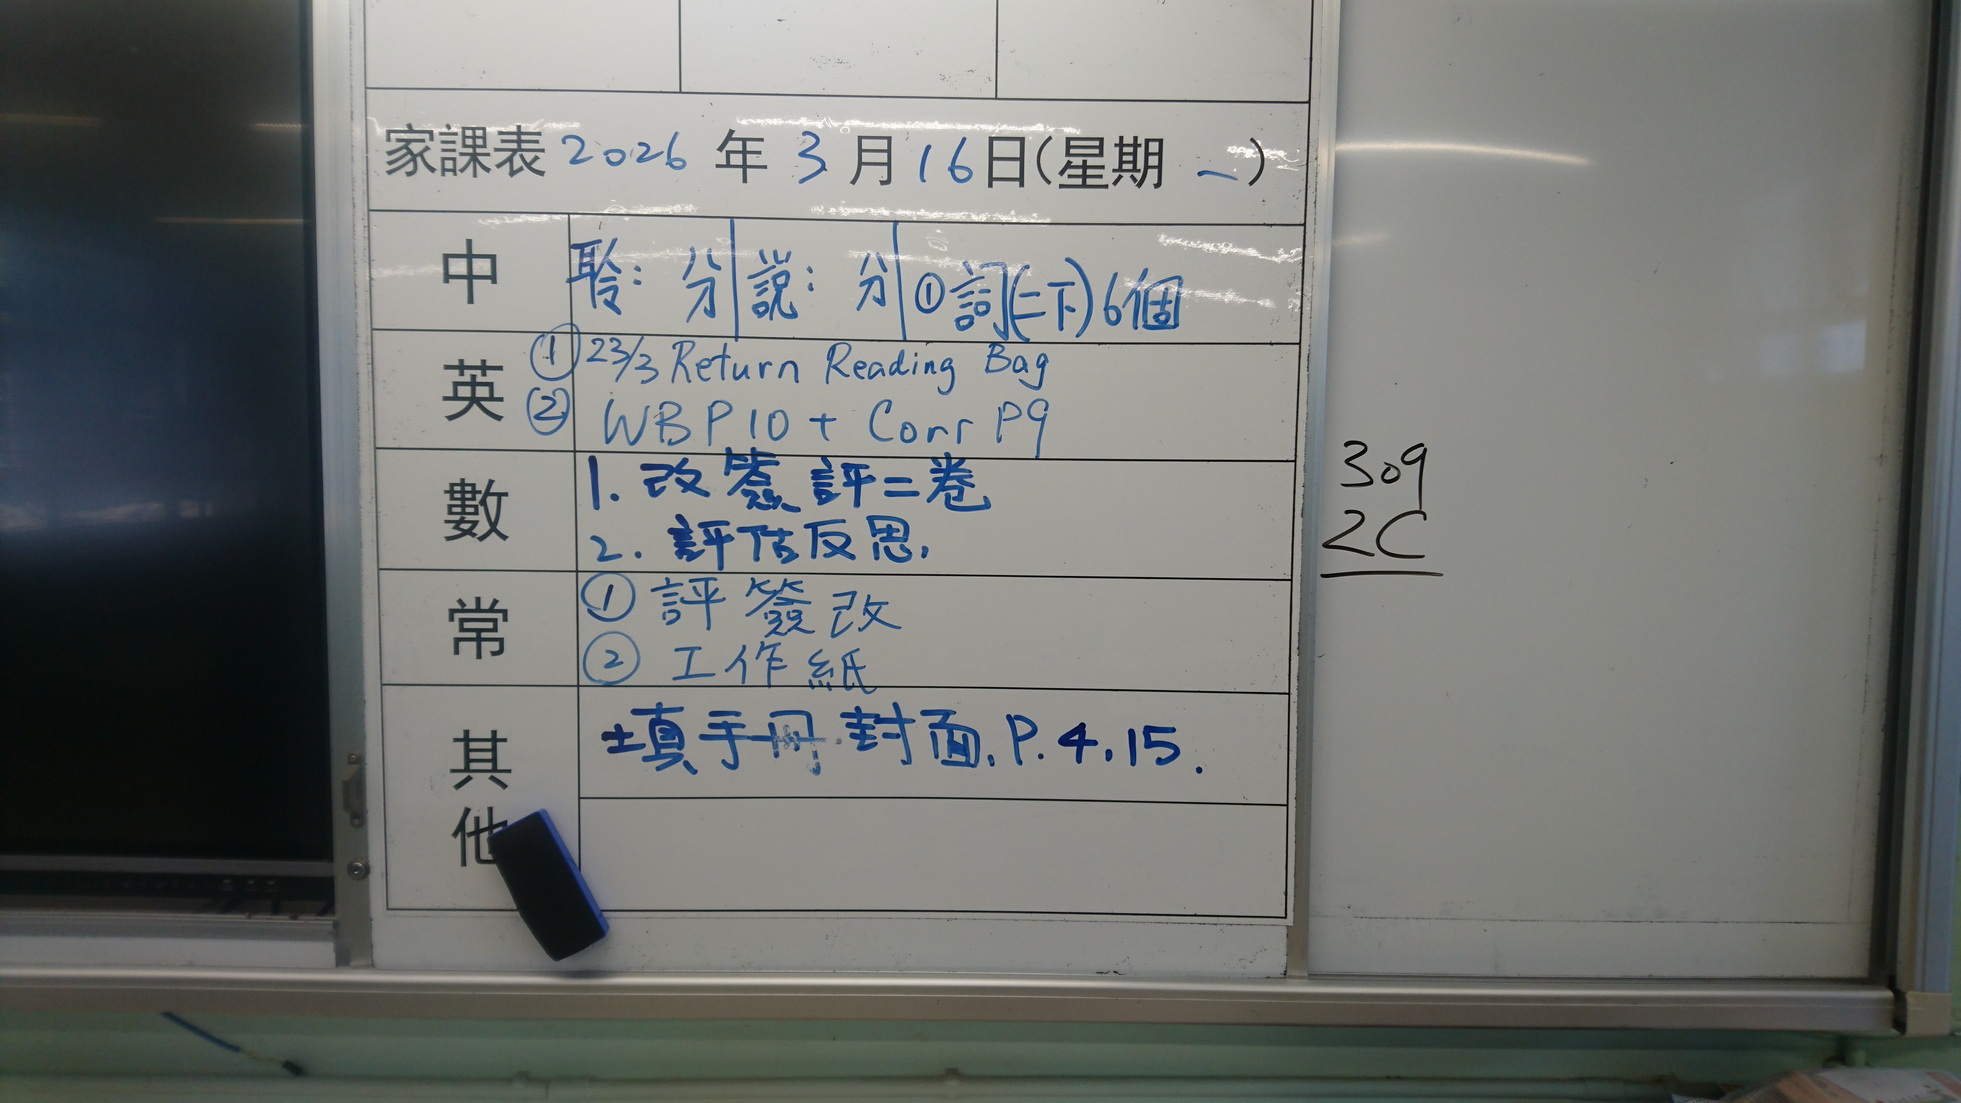 家課表 2026 年 3 月 16 日(星期 一)
中 聆: 分 說: 分 ①詞(二下)6個
英 ① 23/3 Return Reading Bag
② WB P10 + Corr P9
數 1. 改簽評二卷
2. 評估反思.
常 ① 評簽改
② 工作紙
其他 填手冊.封面.P.4.15.
309
2C